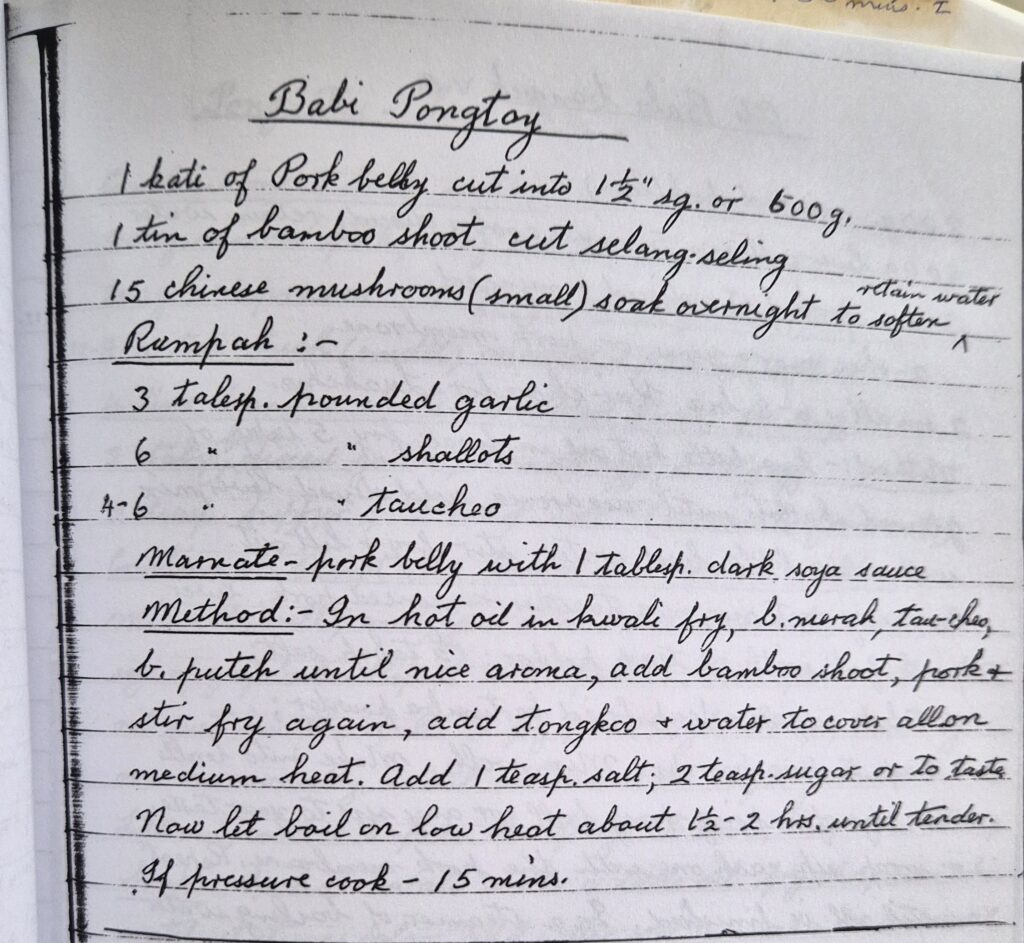 mins. I
Babi Pongtay
1 kati of Pork belly cut into 1 1/2" sq. or 600g.
1 tin of bamboo shoot cut selang-seling
15 chinese mushrooms (small) soak overnight to soften ^ retain water
Rempah :-
3 talesp. pounded garlic
6 " " shallots
4-6 " " taucheo
Marnate - pork belly with 1 tablesp. dark soya sauce
Method:- In hot oil in kwali fry, b. merah, tau-cheo,
b. puteh until nice aroma, add bamboo shoot, pork +
stir fry again, add tongkoo + water to cover all on
medium heat. Add 1 teasp. salt; 2 teasp. sugar or to taste
Now let boil on low heat about 1 1/2 - 2 hrs. until tender.
If pressure cook - 15 mins.